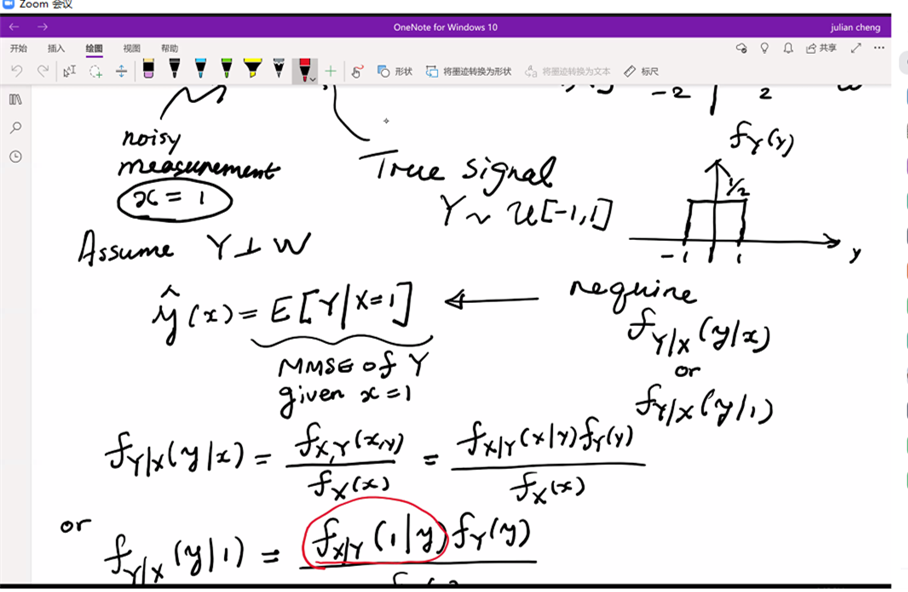 Zoom 会议
OneNote for Windows 10
julian cheng
开始 插入 绘图 视图 帮助
共享
形状 将墨迹转换为形状 将墨迹转换为文本 标尺
-2 2
noisy
measurement
x = 1
True signal
Y ~ U[-1,1]
f_Y(y)
1/2
-1 1 y
Assume Y ⊥ W
ŷ(x) = E[Y|X=1]
MMSE of Y
given x=1
require
f_{Y|X}(y|x)
or
f_{Y|X}(y|1)
f_{Y|X}(y|x) = f_{X,Y}(x,y) / f_X(x) = f_{X|Y}(x|y) f_Y(y) / f_X(x)
or
f_{Y|X}(y|1) = f_{X|Y}(1|y) f_Y(y)